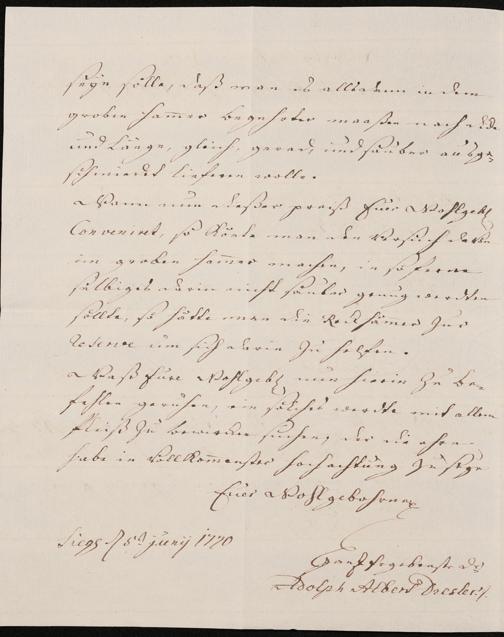 seyn solle, daß man es alsdenn in dem
groben hammer begehrter maaßen nach dick
und Länge, gleich, gerad, und sauber ausge
schmiedet lieferen wolle.
Wann nun dießer preiß Euer Wohlgeb
Conveniret, so Könte man den Versuch davon
im groben hammer machen, in so ferne
selbiges darin nicht sauber genug werden
sollte, so hätte man die Reckhämmer Zur
reserve um sich darin Zu helfen.
Waß Eure Wohlgeb nun hierin Zu be-
fehlen geruhen, ein solches werde mit allem
fleiß Zu bewürken suchen, der die ehre
habe in Vollkommenster hochachtung Zu seyn
Euer Wohlgebohrnen
Siegen 5t Junij 1770
Ganz ergebenster
Adolph Albert Dresler